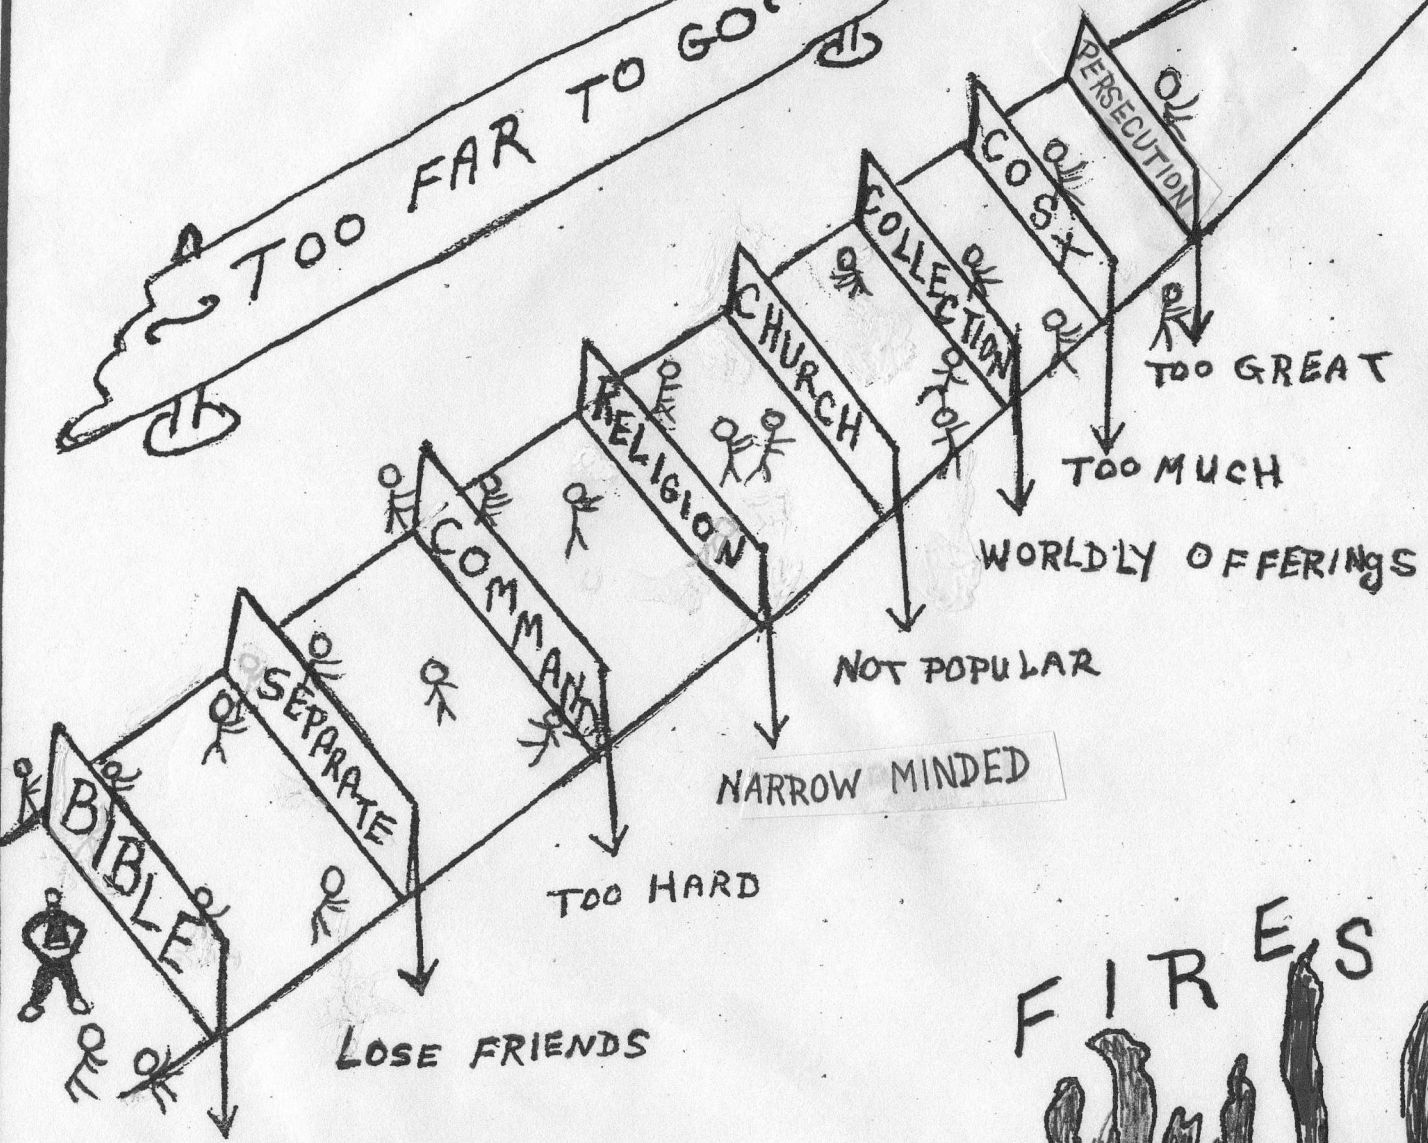 TOO FAR TO GO
PERSECUTION
COSX
COLLECTION
CHURCH
RELIGION
COMMAND
SEPARATE
BIBLE
TOO GREAT
TOO MUCH
WORLDLY OFFERINGS
NOT POPULAR
NARROW MINDED
TOO HARD
LOSE FRIENDS
FIRES